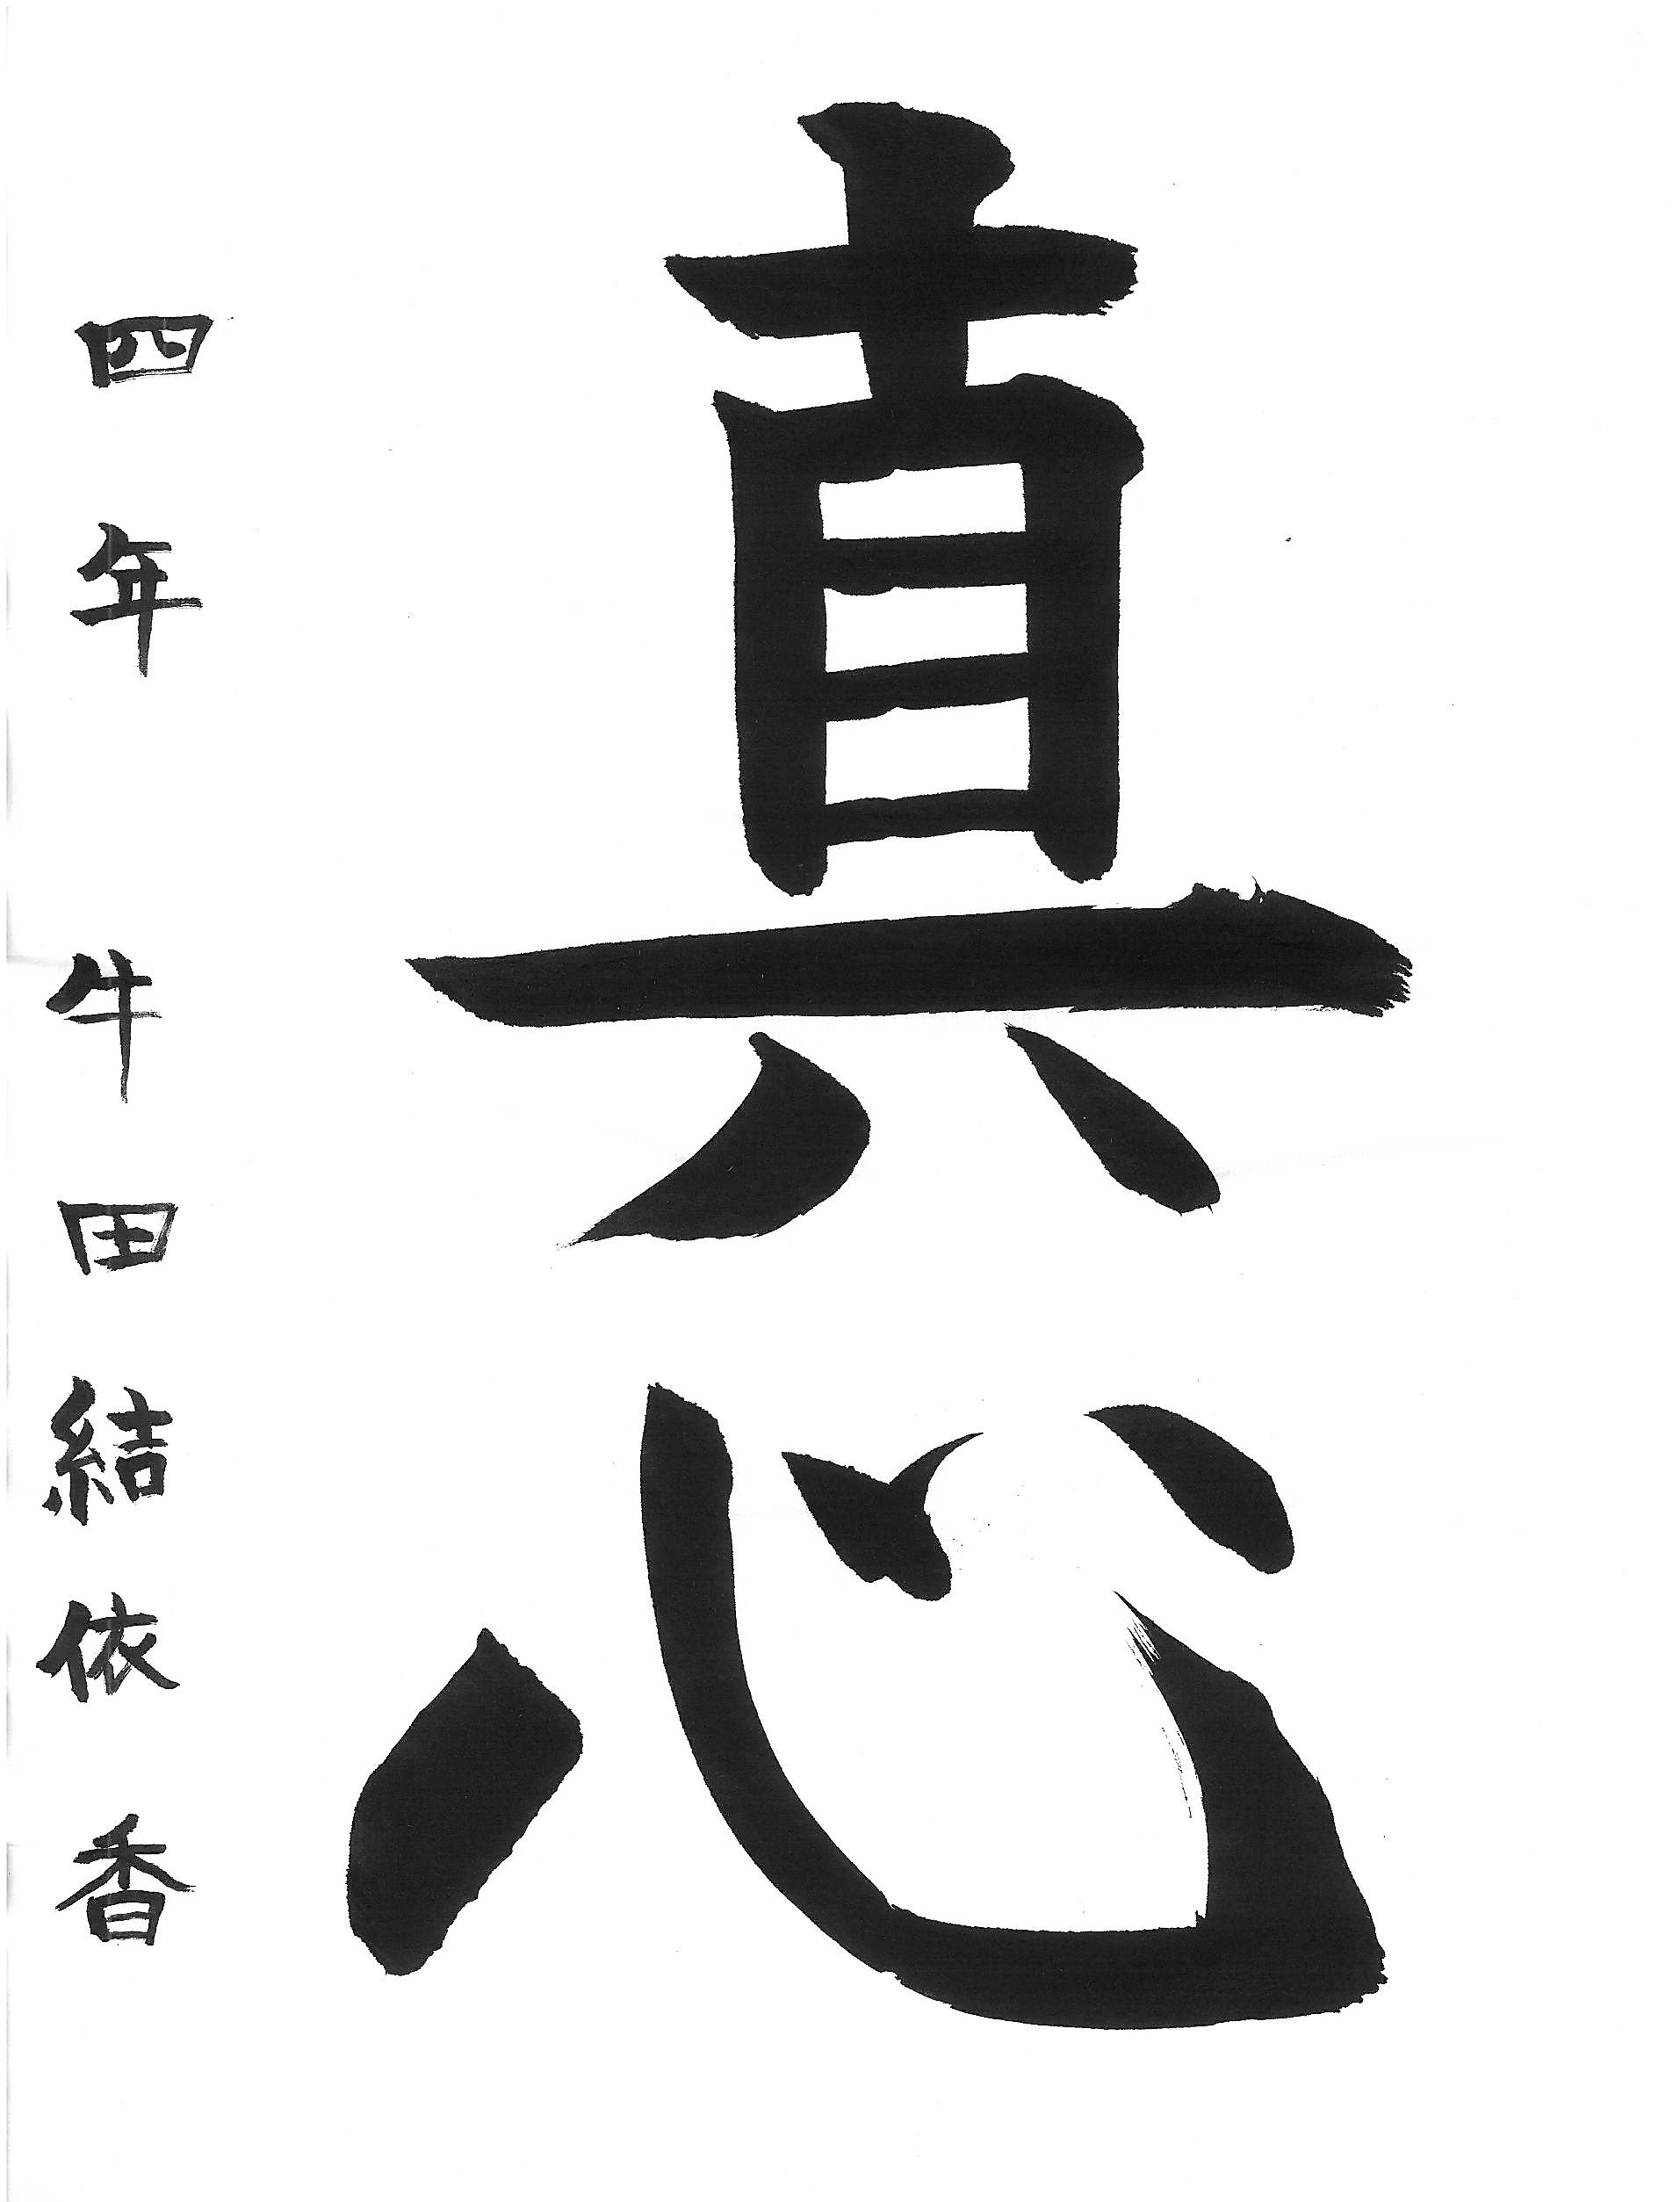 真心
四年 牛田結依香